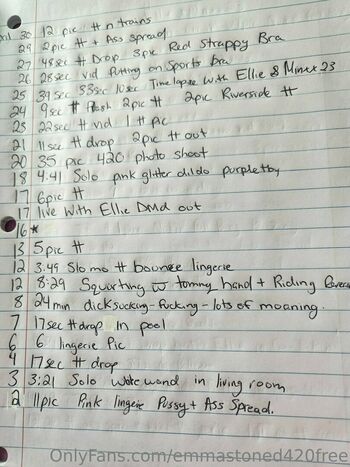 30 12 pic # n trains
29 2pic # + Ass spread
27 48sec # Drop 3pic Red Strappy Bra
26 28sec vid Putting on Sports bra
25 39sec 33sec 10sec Timelapse with Ellie & Minxx 23
24 9sec # flash 2pic # 2pic Riverside #
23 22sec # vid 1 # pic
21 11sec # drop 2pic # out
20 35 pic 420 photo shoot
18 4:41 Solo pink glitter dildo purple toy
17 6pic #
17 live With Ellie Dmd out
16*
13 5pic #
12 3:49 Slomo # bounce lingerie
12 8:29 Squirting w tommy hand + Riding
8 24min dicksucking-fucking-lots of moaning.
7 17sec #drop in pool
6 6 lingerie Pic
4 17sec # drop
3 3:21 Solo wand in living room
2 11pic Pink lingerie Pussy + Ass Spread.
OnlyFans.com/emmastoned420free